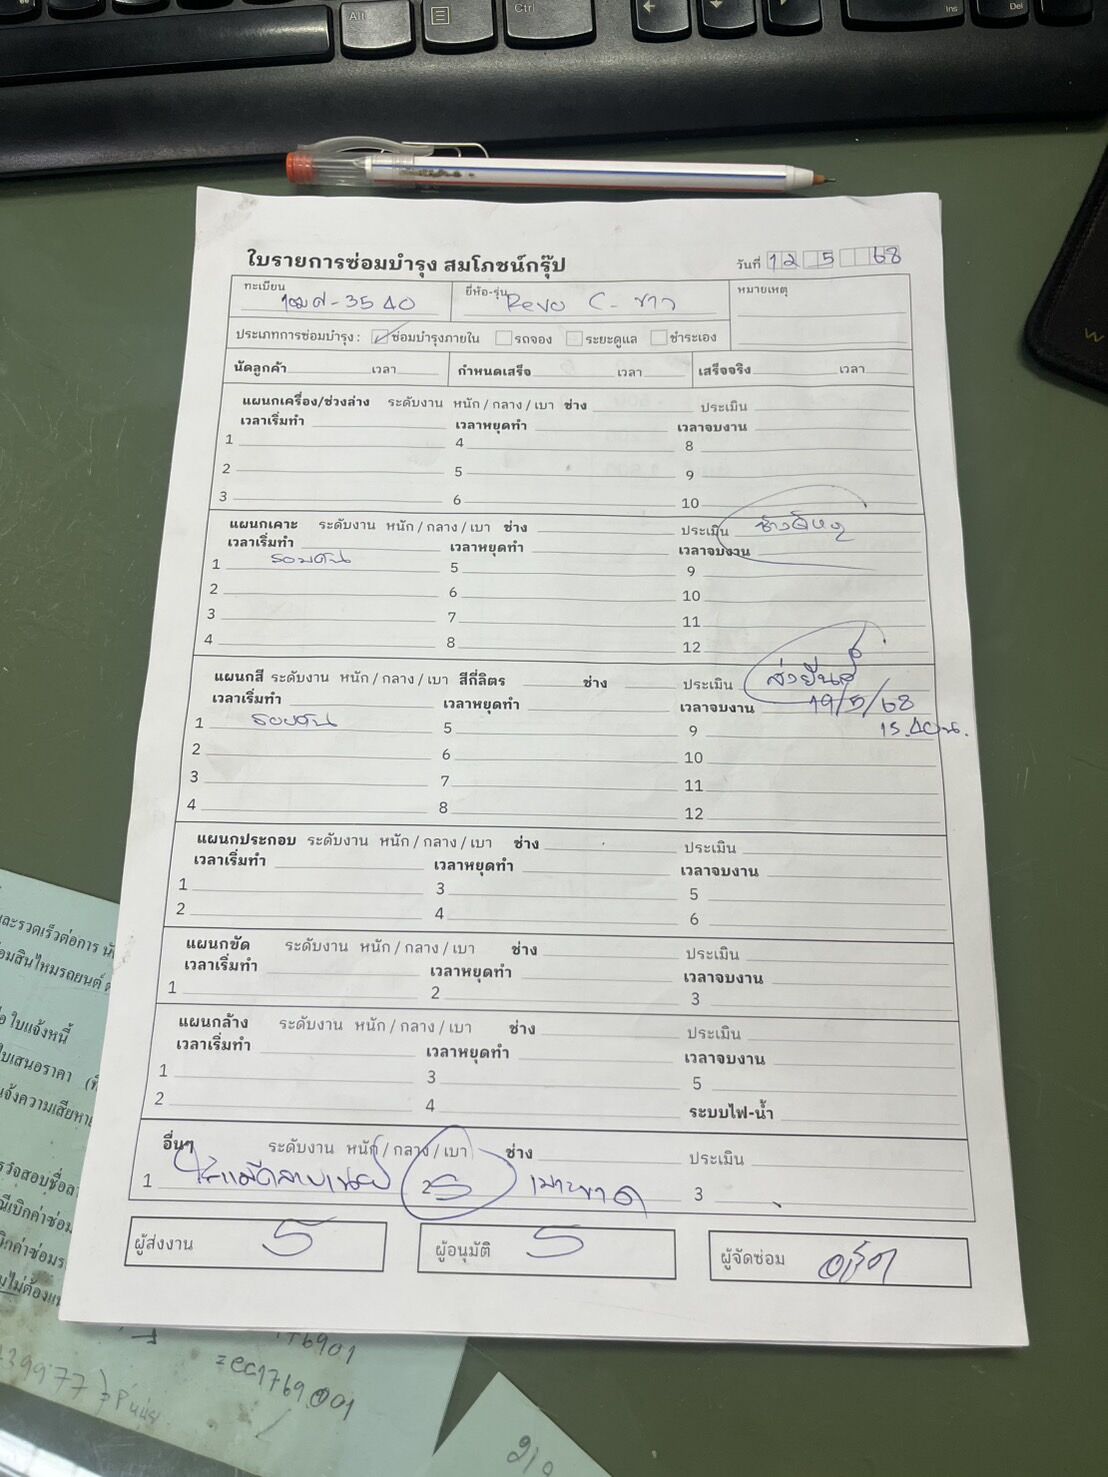 Alt
Ctrl
Ins
Del
ใบรายการซ่อมบำรุง สมโภชน์กรุ๊ป
วันที่ 12 5 68
ทะเบียน
ยี่ห้อ-รุ่น Revo C-ขาว
หมายเหตุ
ประเภทการซ่อมบำรุง : ซ่อมบำรุงภายใน รถจอง ระยะดูแล ชำระเอง
นัดลูกค้า เวลา กำหนดเสร็จ เวลา เสร็จจริง เวลา
แผนกเครื่อง/ช่วงล่าง ระดับงาน หนัก / กลาง / เบา ช่าง ประเมิน
เวลาเริ่มทำ เวลาหยุดทำ เวลาจบงาน
1 4 8
2 5 9
3 6 10
แผนกเคาะ ระดับงาน หนัก / กลาง / เบา ช่าง ประเมิน
เวลาเริ่มทำ เวลาหยุดทำ เวลาจบงาน
1 รอบคัน 5 9
2 6 10
3 7 11
4 8 12
แผนกสี ระดับงาน หนัก / กลาง / เบา สีกี่ลิตร ช่าง ประเมิน
เวลาเริ่มทำ เวลาหยุดทำ เวลาจบงาน 19/5/68
1 รอบคัน 5 9 15.40น.
2 6 10
3 7 11
4 8 12
แผนกประกอบ ระดับงาน หนัก / กลาง / เบา ช่าง ประเมิน
เวลาเริ่มทำ เวลาหยุดทำ เวลาจบงาน
1 3 5
2 4 6
แผนกขัด ระดับงาน หนัก / กลาง / เบา ช่าง ประเมิน
เวลาเริ่มทำ เวลาหยุดทำ เวลาจบงาน
1 2 3
แผนกล้าง ระดับงาน หนัก / กลาง / เบา ช่าง ประเมิน
เวลาเริ่มทำ เวลาหยุดทำ เวลาจบงาน
1 3 5
2 4 ระบบไฟ-น้ำ
อื่นๆ ระดับงาน หนัก / กลาง / เบา ช่าง ประเมิน
1 2 เบาะขาด 3
ผู้ส่งงาน ผู้อนุมัติ ผู้จัดซ่อม
และรวดเร็วต่อการ
ซ่อมสินไหมรถยนต์
ใบแจ้งหนี้
ใบเสนอราคา
แจ้งความเสียหาย
ไม่ต้อง
=ec1769001